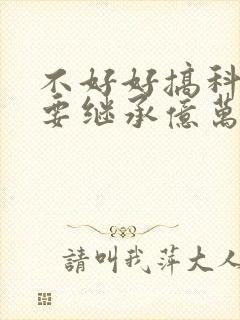 不好好搞科
要继承億萬
請叫我萍大人